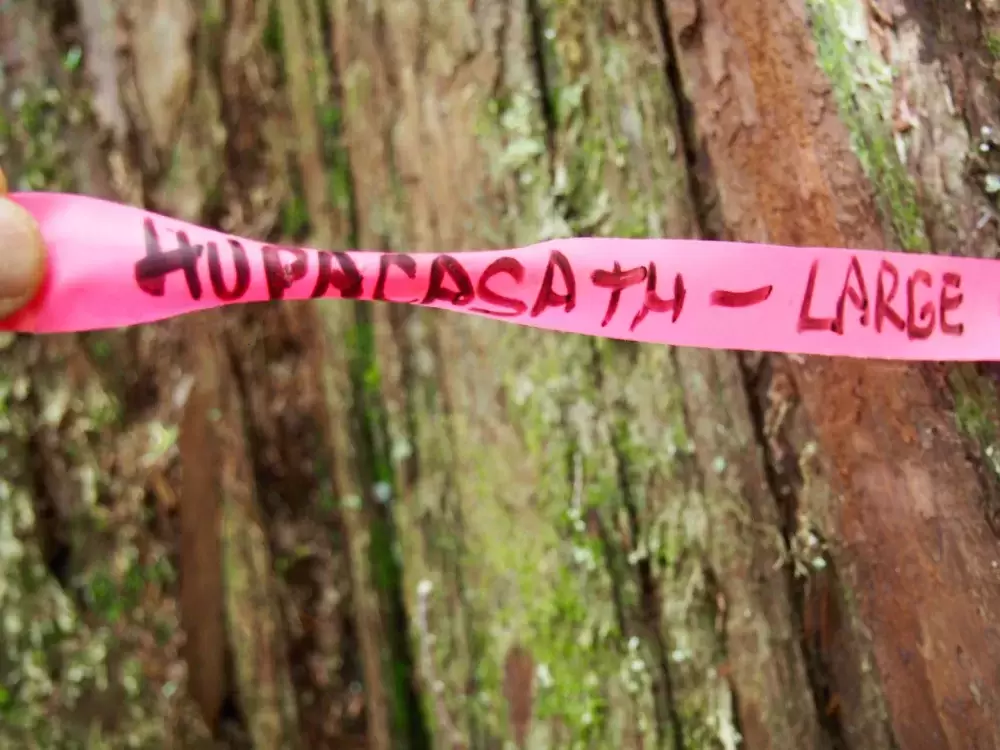 HUPACASATH - LARGE